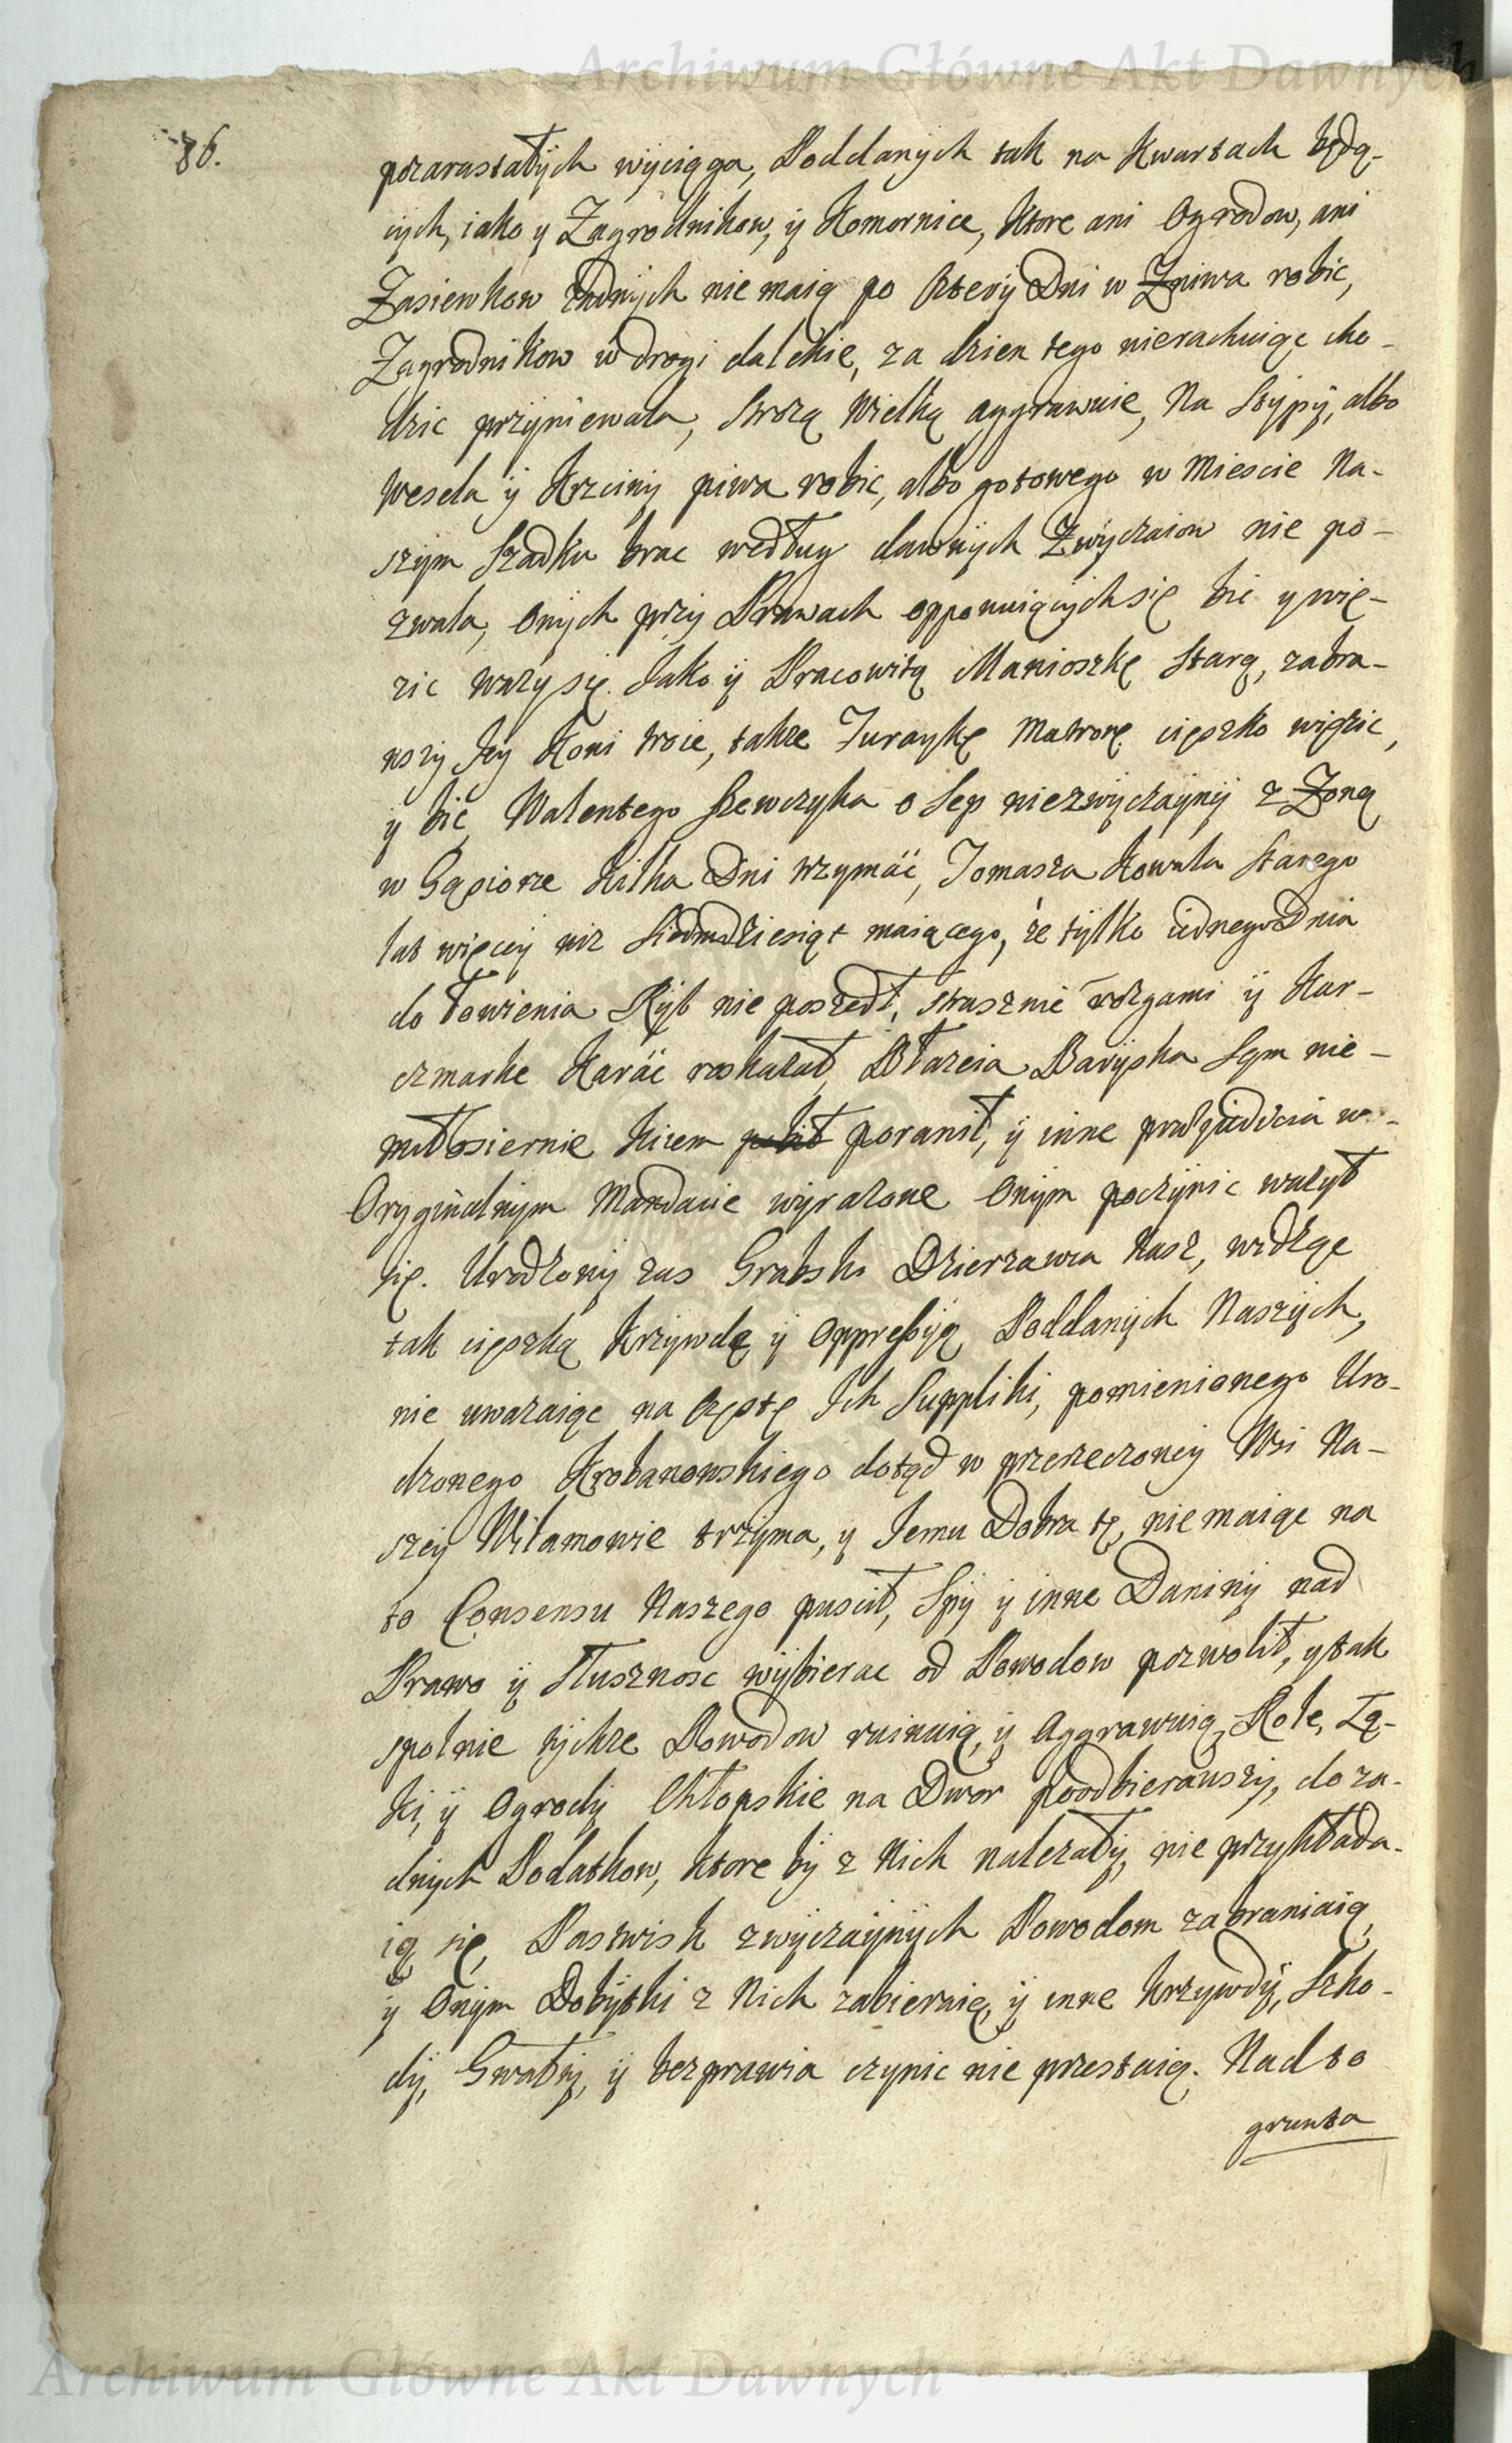 Archiwum Główne Akt Dawnych
86.
pozarastałych wyciąga, Poddanych tak na Kwartach będą-
cych, iako y Zagrodnikow, y Komornice, ktore ani Ogrodow, ani
Zasiewkow żadnych nie maią po cztery Dni w Zniwa robic,
Zagrodnikow w drogi dalekie, za dzien tego nierachuiąc cho-
dzic przyniewala, Strożą Wielką aggrawuie, Na Stypy, albo
Wesela y Krzciny piwa robic, albo gotowego w Miescie Na-
szym Szadku brac według dawnych Zwyczaiow nie po-
zwala, Onych przy Prawach opponuiących się bic y wię-
zic waży się. Jako y Pracowitą Manioszkę Starą, zabra-
wszy Jey Koni troie, także Juraykę Matronę cięszko więzic,
y bic, Walentego Szewczyka o Sep niezwyczayny z Zoną
w Gąsiorze kilka Dni trzymac, Tomasza Kowala Starego
lat więcey niz Siedmdziesiąt maiącego, że tylko iednego Dnia
do łowienia Ryb nie poszedł, strasznie rozgami y Kar-
czmarkę karac roskazał, Błazeia Baryska Sam nie-
miłosiernie kiiem pobił poranił, y inne w-
Oryginalnym Mandacie wyrazone Onym poczynic wazył
się. Urodzony zas Grabski Dzierzawca Nasz, widząc
tak cięszką krzywdę y Oppressyą Poddanych Naszych,
nie uwazaiąc na częste Ich Suppliki, pomienionego Uro-
dzonego Krobanowskiego dotąd w przerzeczoney Wsi Na-
szey Wilamowie trzyma, y Jemu Dobra te, nie maiąc na
to Consensu Naszego puscił, Spy y inne Daniny nad
Prawo y słusznosc wybierac od Powodow pozwolił, y tak
spolnie tychze Powodow ruinuią, y Aggrawuią, Role, Łą-
ki, y Ogrody Chłopskie na Dwor poodbierawszy, do za-
dnych Podatkow, ktore by z Nich nalezały, nie przykłada-
ią się, Pastwisk zwyczaynych Powodom zabraniaią,
y Onym Dobytki z Nich zabieraią, y inne krzywdy, Szko-
dy, Gwałty, y bezprawia czynic nie przestaią. Nadto
grunta
Archiwum Główne Akt Dawnych